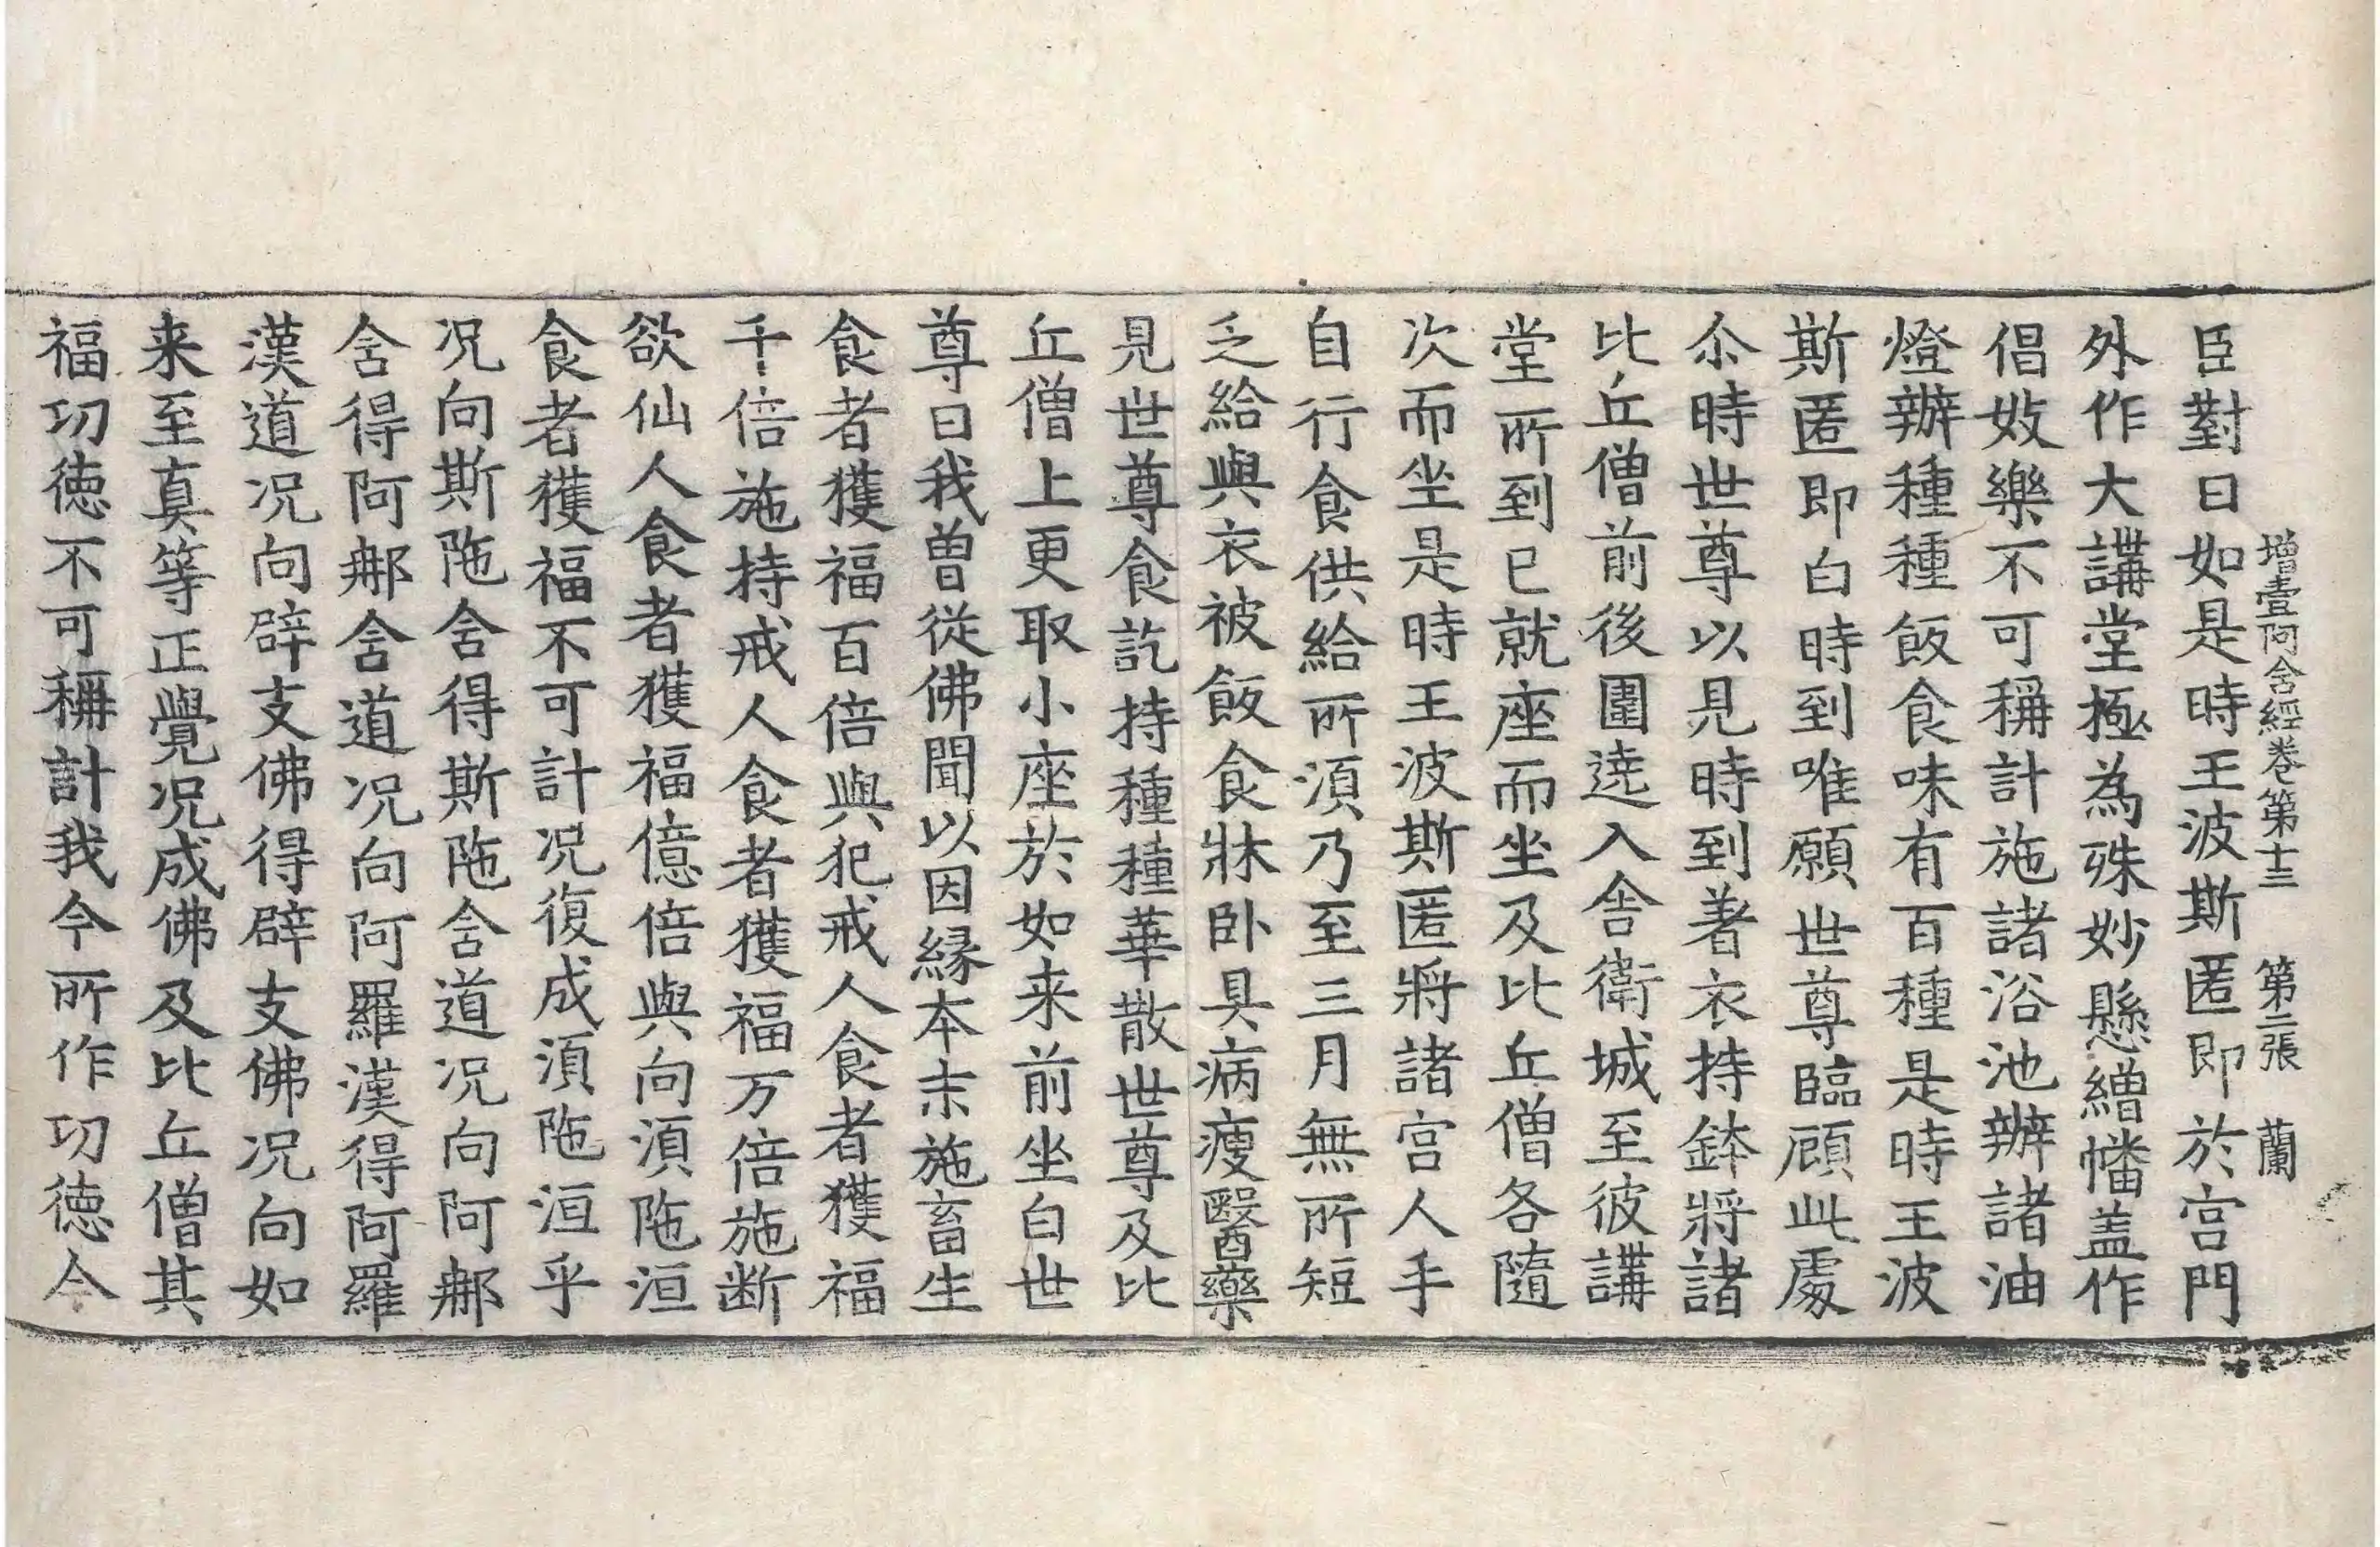 增壹阿含經卷第十三 第二張 蘭
臣對曰如是時王波斯匿即於宫門
外作大講堂極為殊妙懸繒幡盖作
倡妓樂不可稱計施諸浴池辦諸油
燈辦種種飯食味有百種是時王波
斯匿即白時到唯願世尊臨顧此處
尒時世尊以見時到著衣持鉢將諸
比丘僧前後圍遶入舍衛城至彼講
堂所到已就座而坐及比丘僧各隨
次而坐是時王波斯匿將諸宫人手
自行食供給所湏乃至三月無所短
乏給與衣被飯食牀卧具病瘦醫藥
見世尊食訖持種種華散世尊及比
丘僧上更取小座於如来前坐白世
尊曰我曽從佛聞以因緣本末施畜生
食者獲福百倍與犯戒人食者獲福
千倍施持戒人食者獲福万倍施断
欲仙人食者獲福億倍與向湏陁洹
食者獲福不可計况復成湏陁洹乎
况向斯陁含得斯陁含道况向阿那
含得阿那含道况向阿羅漢得阿羅
漢道况向辟支佛得辟支佛况向如
来至真等正覺况成佛及比丘僧其
福功德不可稱計我今所作功德今